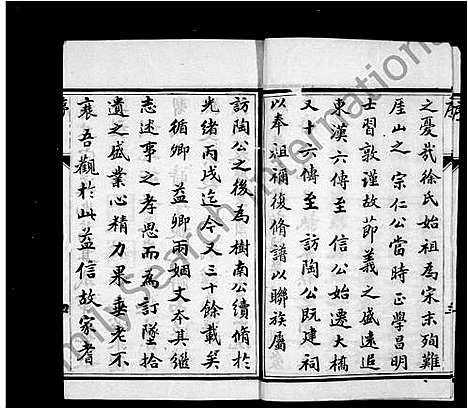 之憂哉徐氏始祖為宋末殉難
厓山之 宗仁公當時正學昌明
士習敦謹故節義之盛遠追
東漢六傳至 信公始遷大橋
又十六傳至 訪陶公既建祠
以奉祖禰復脩譜以聯族屬
訪陶公之後為樹南公續脩於
光緒丙戌迄今又三十餘載矣
循卿 益卿兩姻丈本其繼
志述事之孝思而為訂墜拾
遺之盛業心精力果垂老不
衰吾觀於此益信故家耆
序
三
四
FamilySearch International